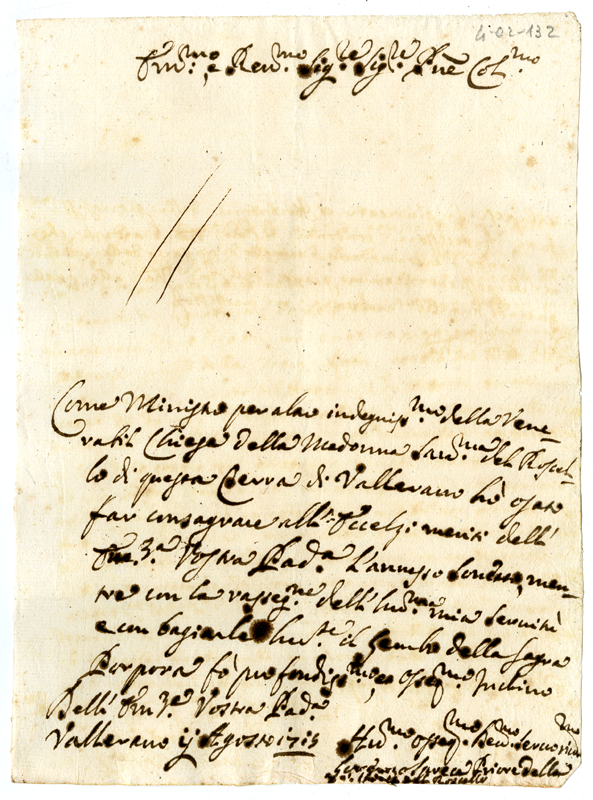 4-02-132
Em.mo, e Rev.mo Sig.re Sig.re P.ne Col.mo
Come Ministro per altro indegniss.mo della Vene=
rabil Chiesa della Madonna San.ma del Ruscel=
lo di questa Terra di Vallerano hò osato
far consagrare all' Eccelsi meriti dell'
Em.za Vostra Pad.a l'annesso Sonetto, men=
tre con la rasseg.ne dell' hum.ma mia servitù
e con bagiarle hu.te il Lembo della Sagra
Porpora fò profondiss.mo, et osseq.mo Inchino
Dell' Em.ze Vostra Pad.a
Vallerano ij Agosto 1715
Hu.mo osseq.mo Rev.mo Servo
Priore della